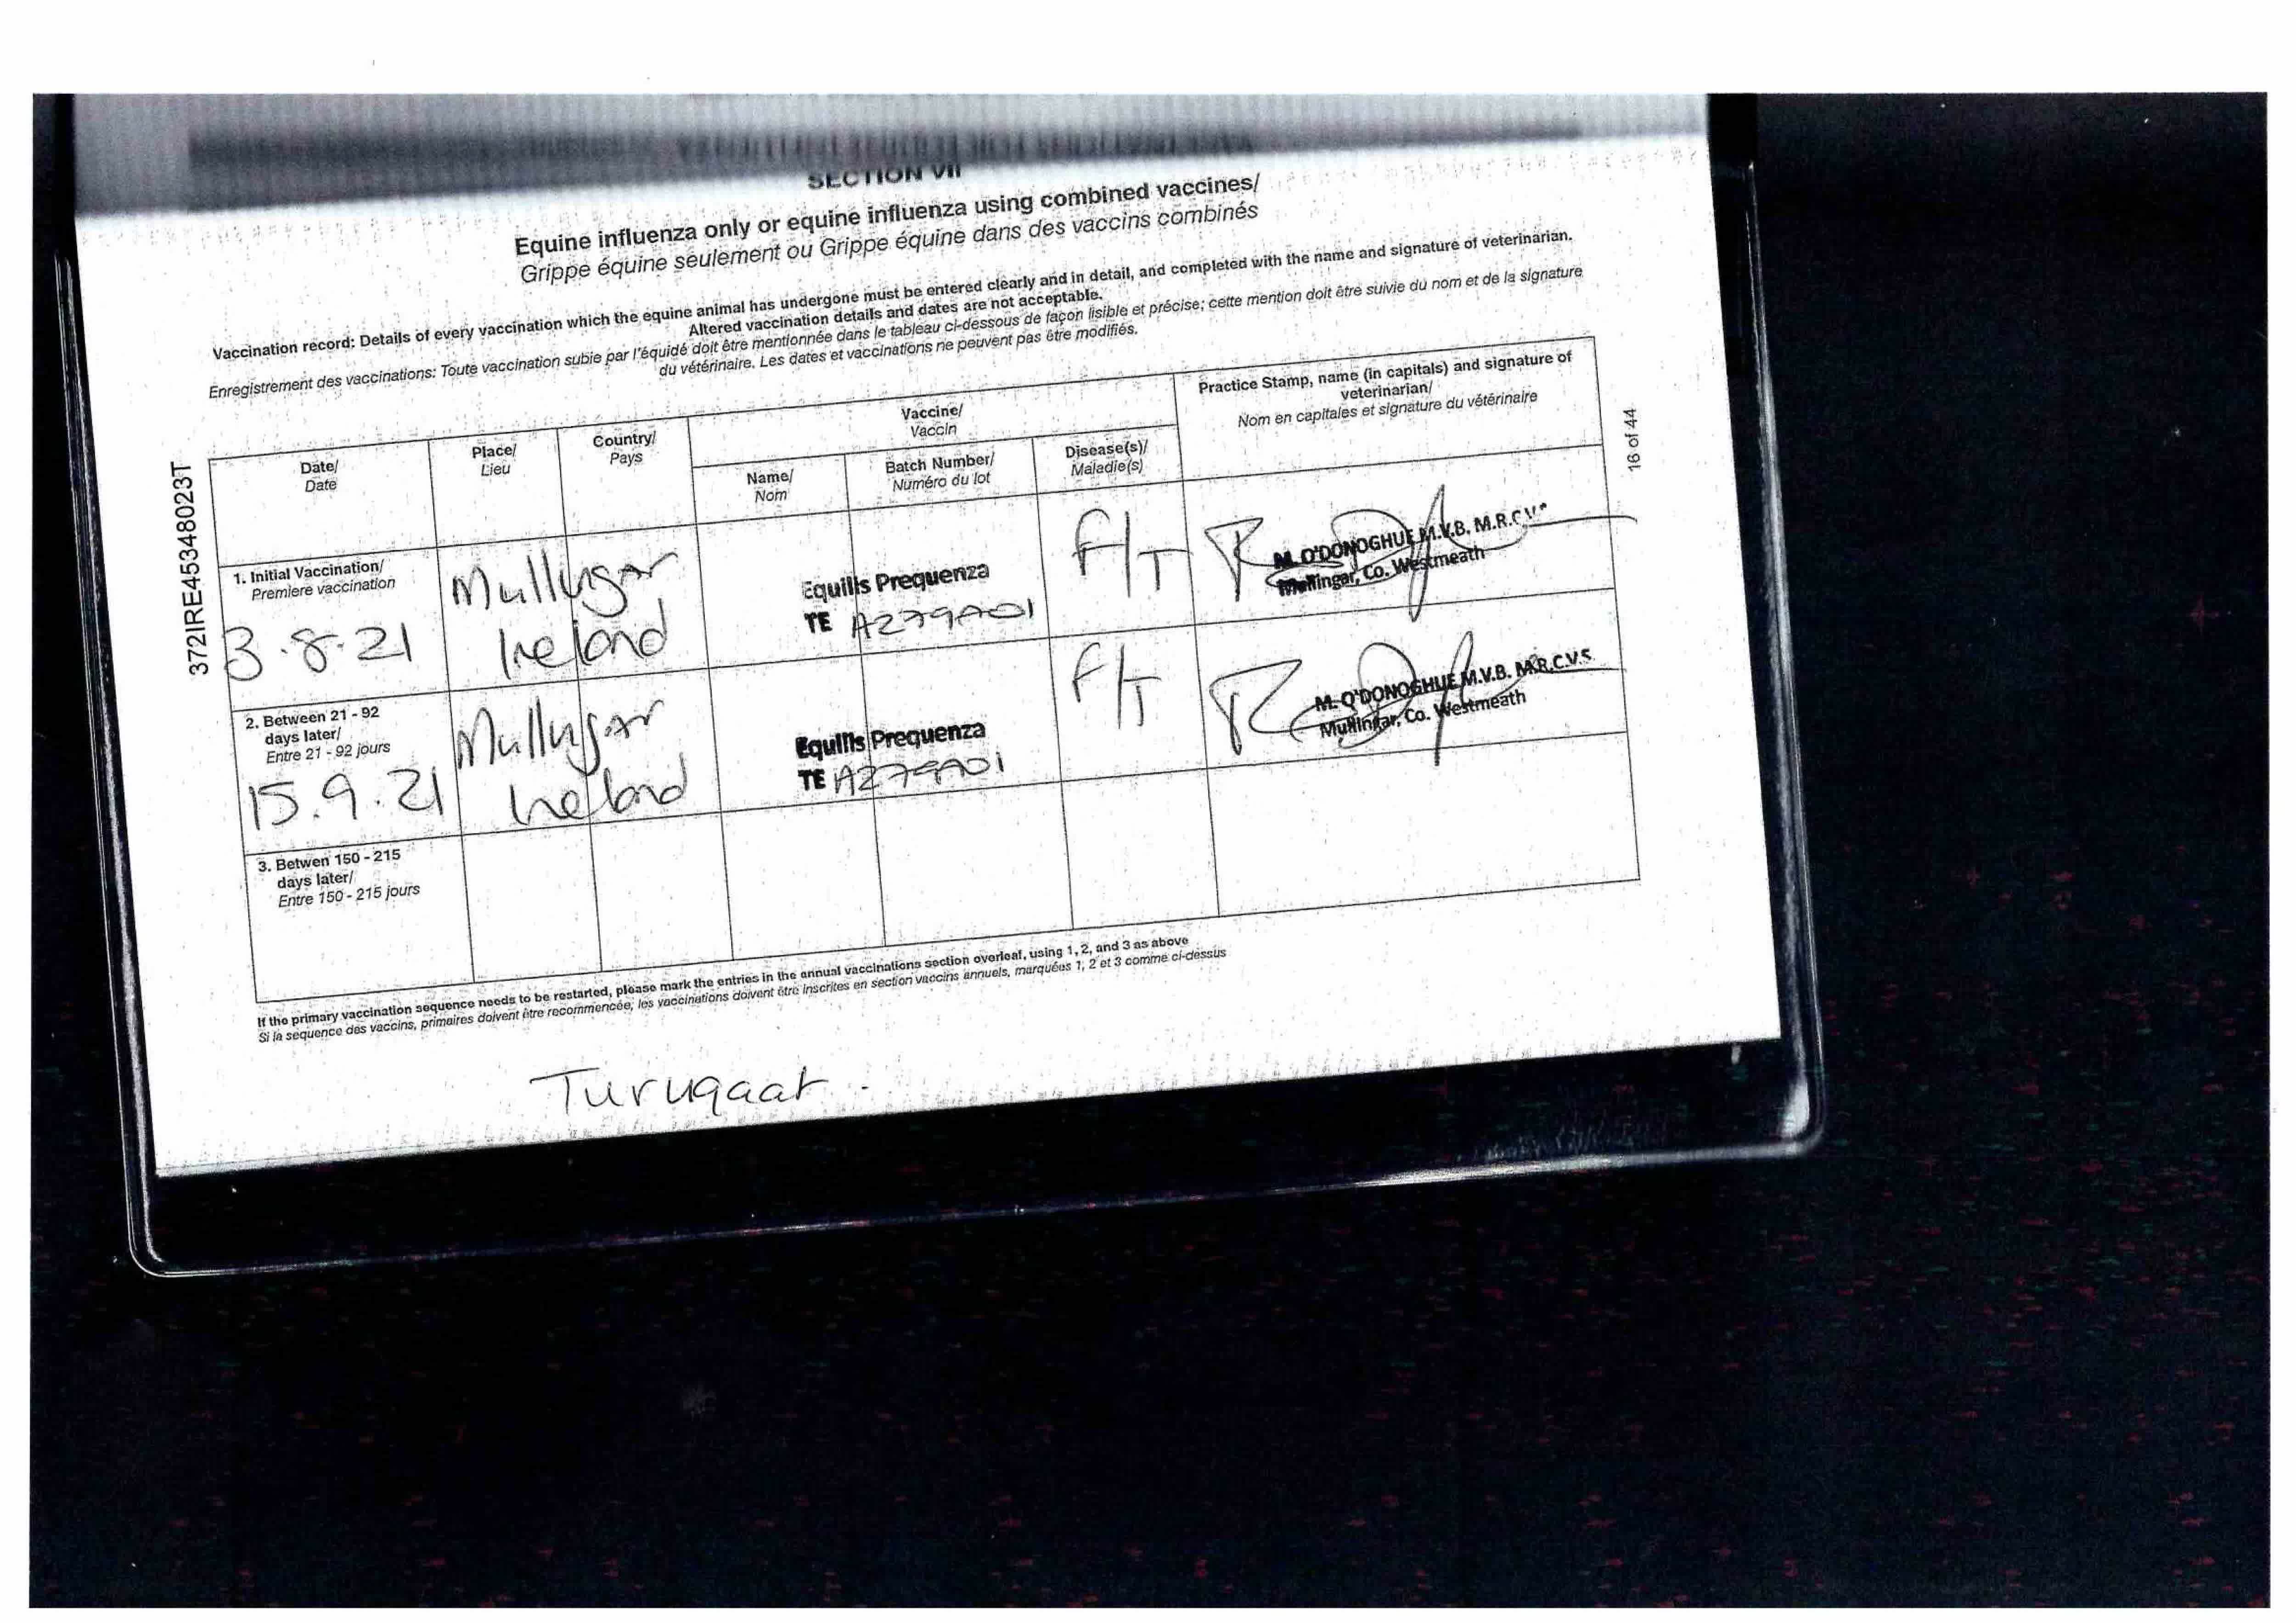 SECTION VII
Equine influenza only or equine influenza using combined vaccines/
Grippe équine seulement ou Grippe équine dans des vaccins combinés
Vaccination record: Details of every vaccination which the equine animal has undergone must be entered clearly and in detail, and completed with the name and signature of veterinarian.
Altered vaccination details and dates are not acceptable.
Enregistrement des vaccinations: Toute vaccination subie par l'équidé doit être mentionnée dans le tableau ci-dessous de façon lisible et précise; cette mention doit être suivie du nom et de la signature
du vétérinaire. Les dates et vaccinations ne peuvent pas être modifiés.
372IRE45348023T
16 of 44
Date/
Date
Place/
Lieu
Country/
Pays
Vaccine/
Vaccin
Name/
Nom
Batch Number/
Numéro du lot
Disease(s)/
Maladie(s)
Practice Stamp, name (in capitals) and signature of
veterinarian/
Nom en capitales et signature du vétérinaire
1. Initial Vaccination/
Premiere vaccination
3.8.21
Mullingar
Ireland
Equilis Prequenza
TE A279A01
F/T
M. O'DONOGHUE M.V.B. M.R.C.V.
Mullingar, Co. Westmeath
2. Between 21 - 92
days later/
Entre 21 - 92 jours
15.9.21
Mullingar
Ireland
Equilis Prequenza
TE A279A01
F/T
M. O'DONOGHUE M.V.B. M.R.C.V.S.
Mullingar, Co. Westmeath
3. Betwen 150 - 215
days later/
Entre 150 - 215 jours
If the primary vaccination sequence needs to be restarted, please mark the entries in the annual vaccinations section overleaf, using 1, 2, and 3 as above
Si la sequence des vaccins, primaires doivent être recommencée, les vaccinations doivent être inscrites en section vaccins annuels, marquées 1, 2 et 3 comme ci-dessus
Turuqaat